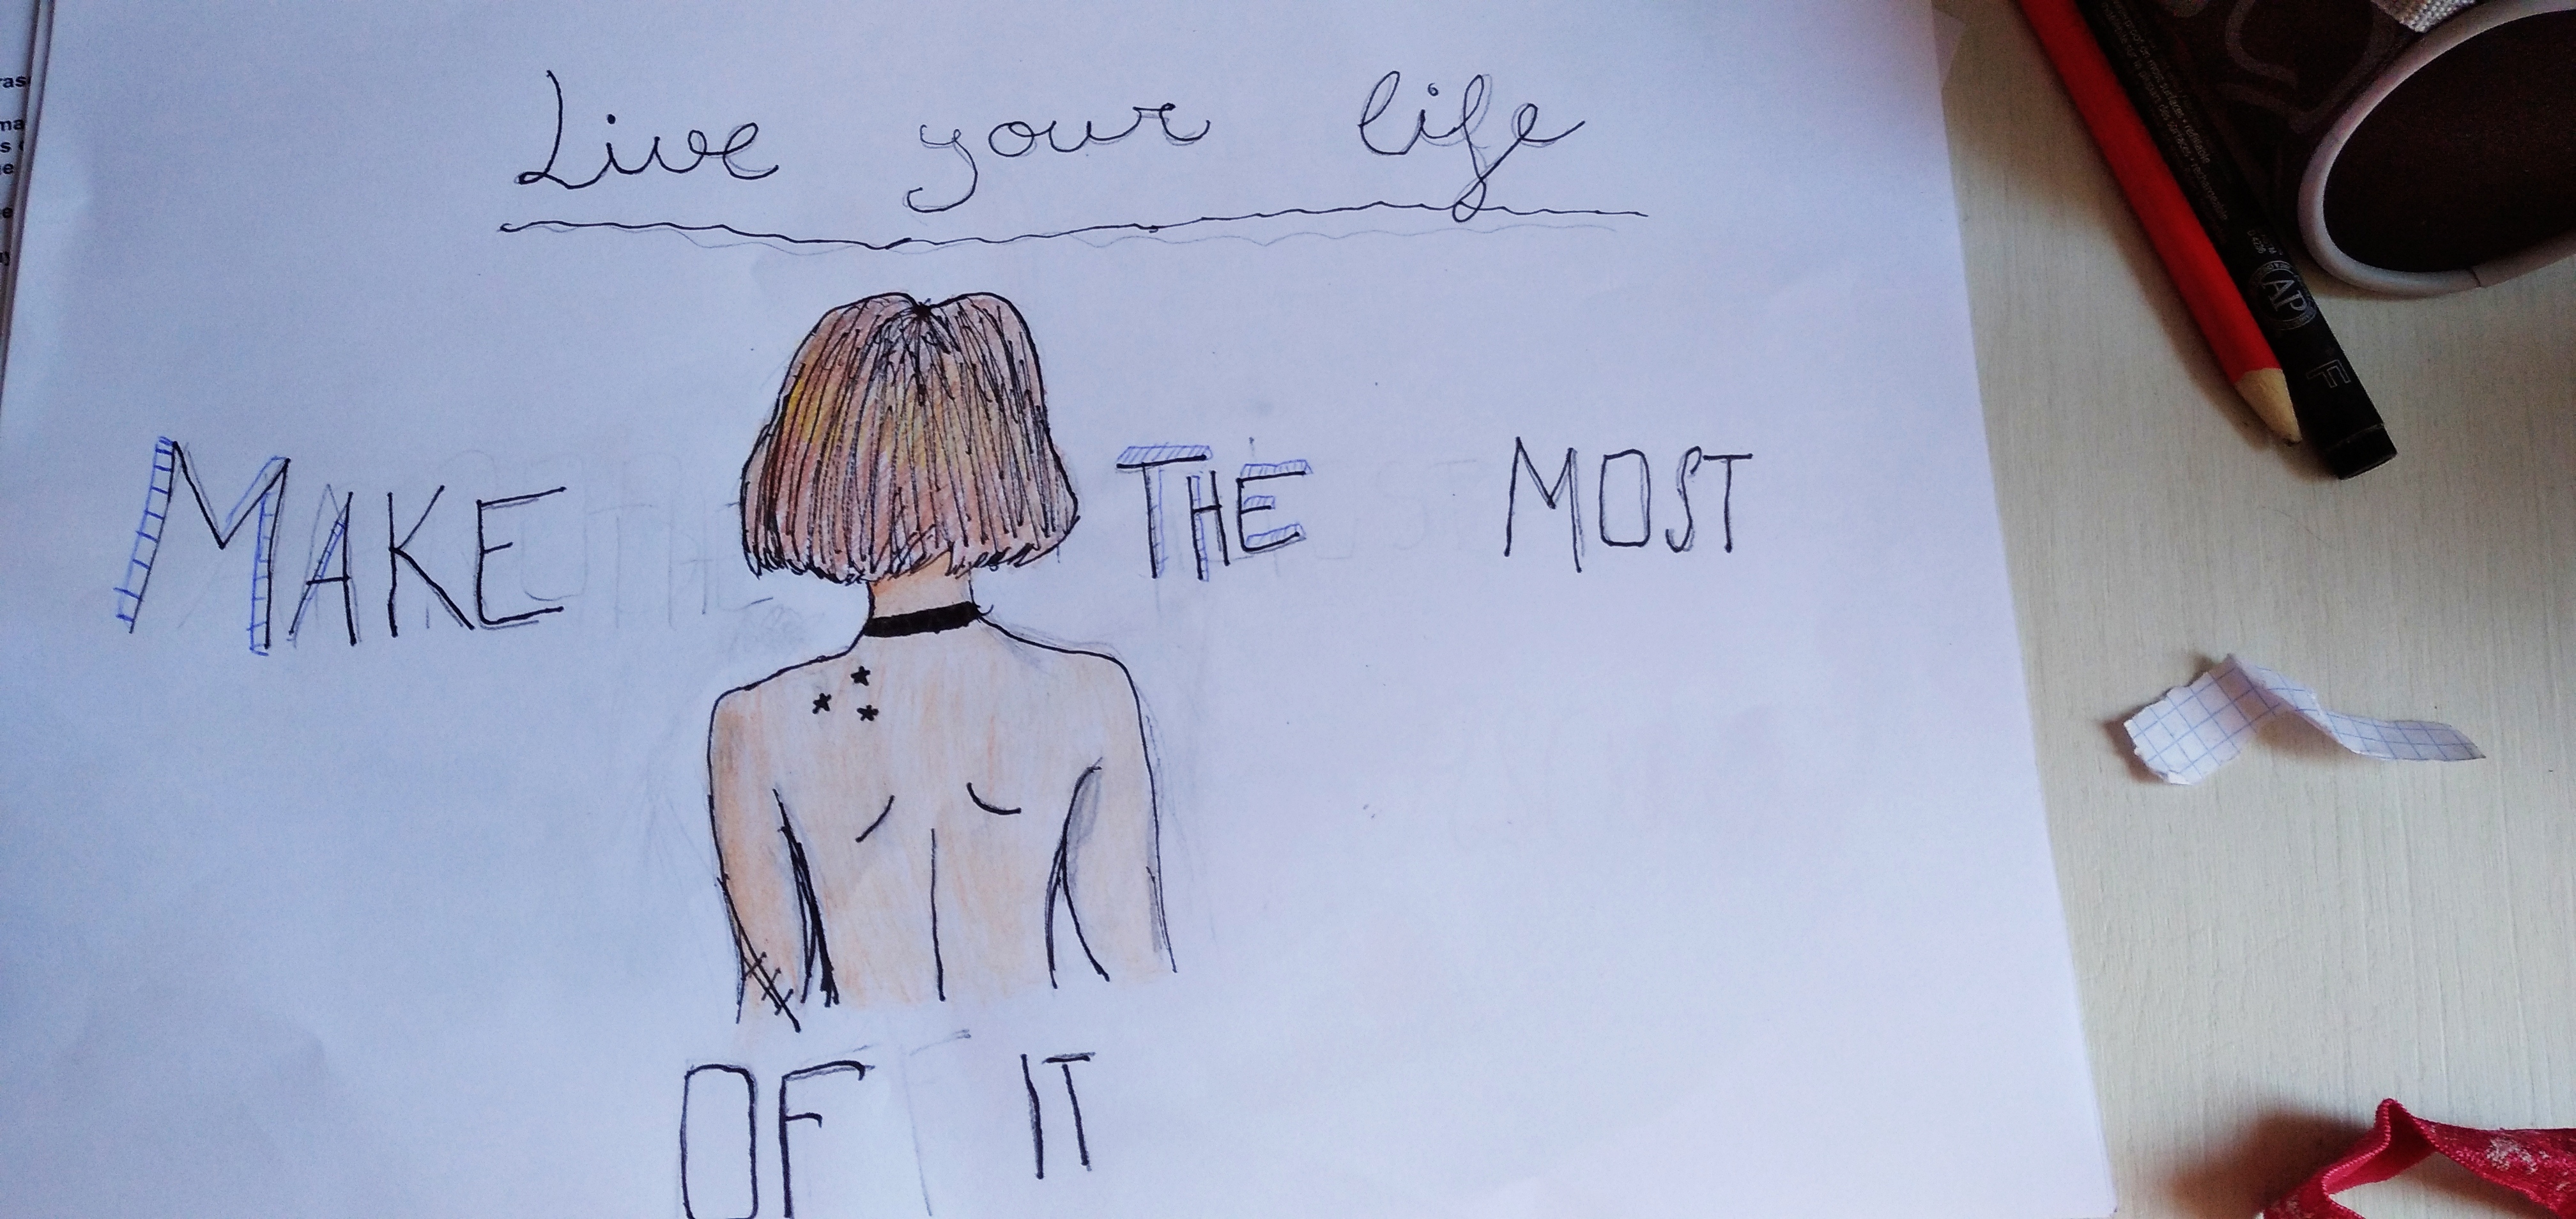 Live your life
MAKE THE MOST
OF IT
AP
F